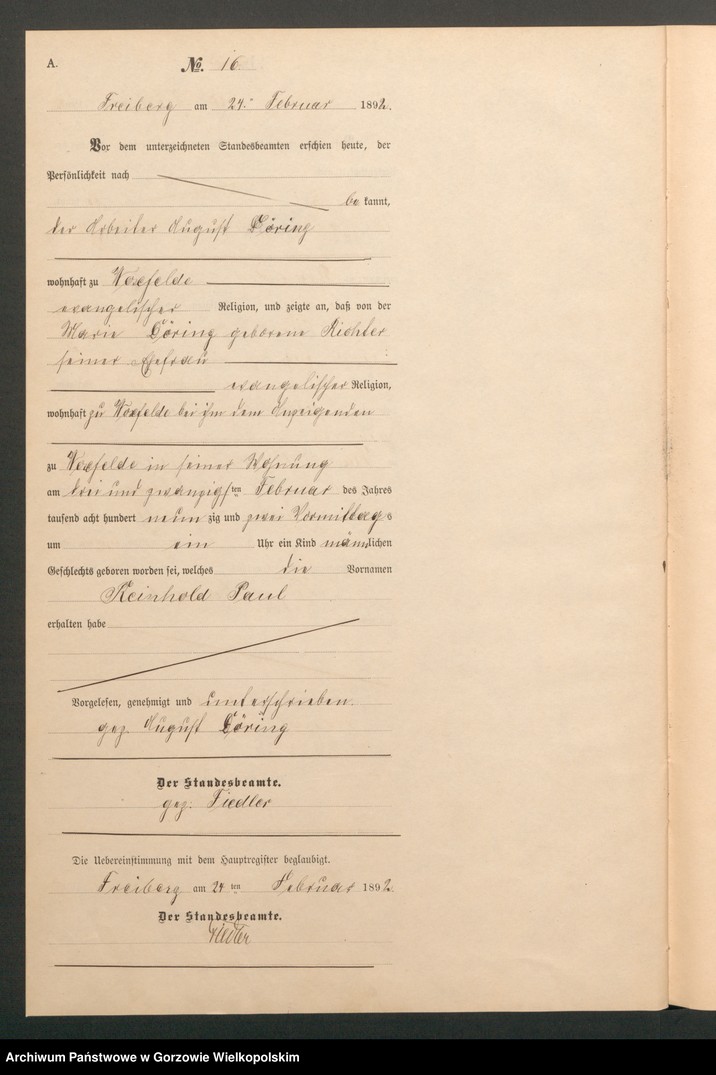 A.
No. 16.
Freiberg am 24. Februar 1892.
Vor dem unterzeichneten Standesbeamten erschien heute, der
Persönlichkeit nach
bekannt,
der Arbeiter August Döring
wohnhaft zu Woxfelde
evangelischer Religion, und zeigte an, daß von der
Marie Döring geborene Richter
seiner Ehefrau
evangelischer Religion,
wohnhaft zu Woxfelde bei ihm dem Anzeigenden
zu Woxfelde in seiner Wohnung
am drei und zwanzigsten Februar des Jahres
tausend acht hundert neunzig und zwei Vormittags
um ein Uhr ein Kind männlichen
Geschlechts geboren worden sei, welches die Vornamen
Reinhold Paul
erhalten habe
Vorgelesen, genehmigt und unterschrieben.
gez. August Döring
Der Standesbeamte.
gez. Fiedler
Die Uebereinstimmung mit dem Hauptregister beglaubigt.
Freiberg am 24ten Februar 1892.
Der Standesbeamte.
Fiedler
Archiwum Państwowe w Gorzowie Wielkopolskim